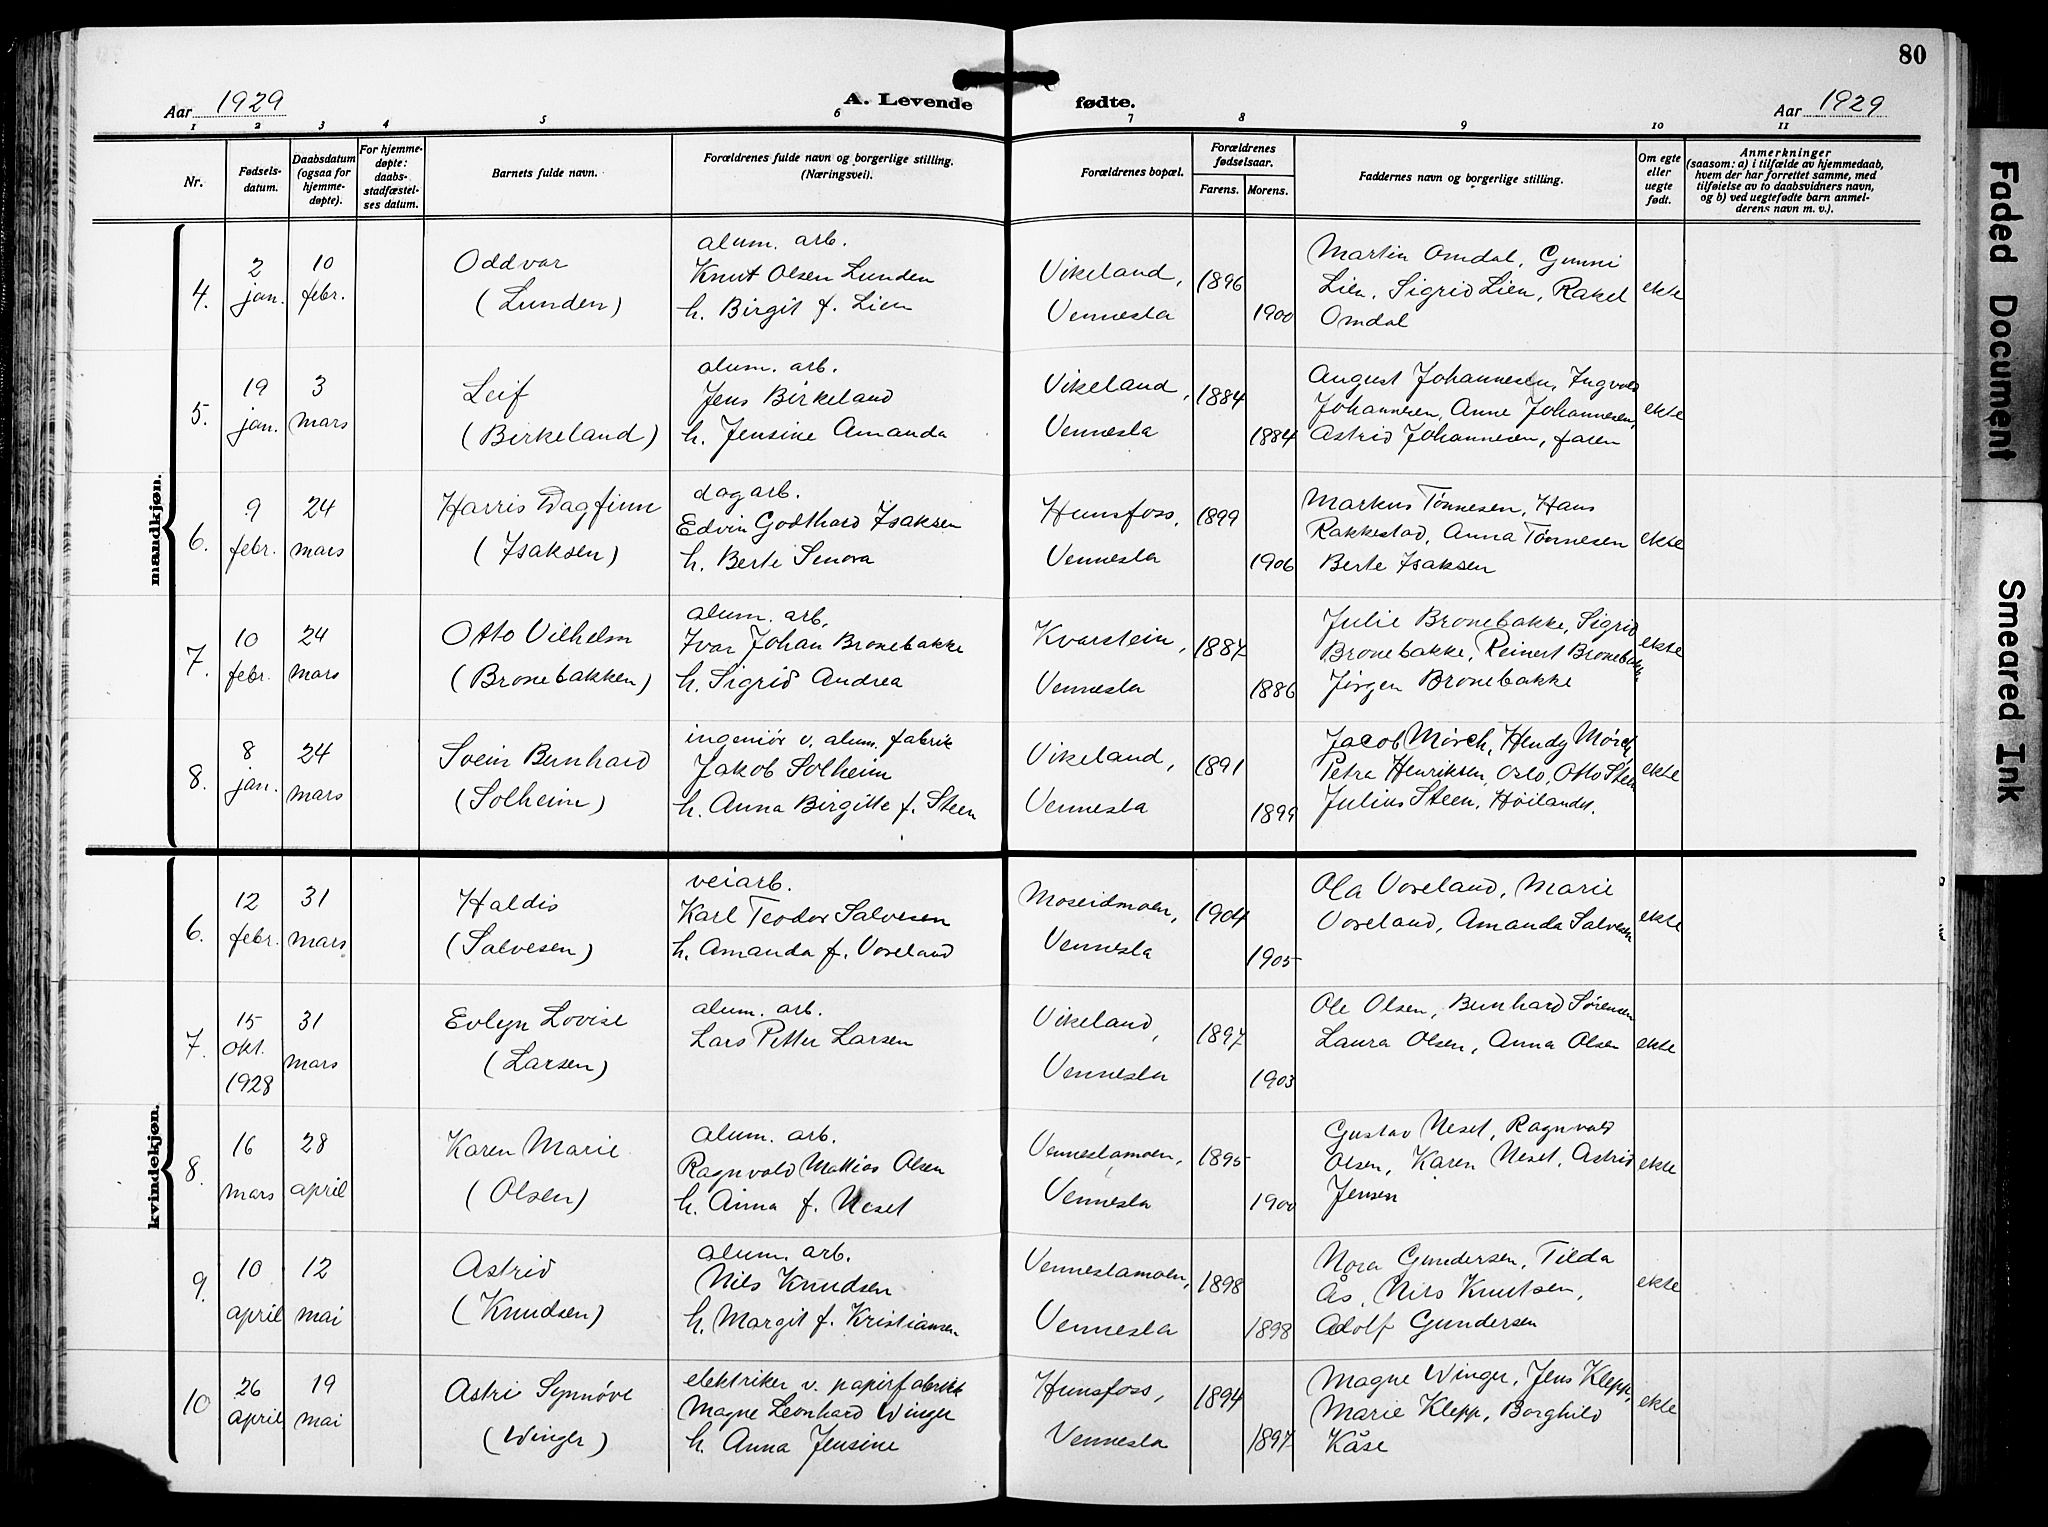 80
Aar 1929
A. Levende fødte.
Aar 1929
1 2 3 4 5 6 7 8 9 10 11
Nr.
Fødsels-
datum.
Daabsdatum
(ogsaa for
hjemme-
døpte).
For hjemme-
døpte:
daabs-
stadfæstel-
ses datum.
Barnets fulde navn.
Forældrenes fulde navn og borgerlige stilling.
(Næringsvei).
Forældrenes bopæl.
Forældrenes
fødselsaar.
Farens. Morens.
Faddernes navn og borgerlige stilling.
Om egte
eller
uegte
født.
Anmerkninger
(saasom: a) i tilfælde av hjemmedaab,
hvem der har forrettet samme, med
tilføielse av to daabsvidners navn,
og b) ved uegtefødte barn anmel-
derens navn m. v.).
mandkjøn.
4.
2
jan.
10
febr.
Oddvar
(Lunden)
alum. arb.
Knut Olsen Lunden
h. Birgit f. Lien
Vikeland,
Vennesla
1896
1900
Martin Omdal, Gunni
Lien, Sigrid Lien, Rakel
Omdal
ekte
5.
19
jan.
3
mars
Leif
(Birkeland)
alum. arb.
Jens Birkeland
h. Jensine Amanda
Vikeland,
Vennesla
1884
1884
August Johannesen, Ingvald
Johannesen, Anne Johannesen,
Astrid Johannesen, faren
ekte
6.
9
febr.
24
mars
Harris Dagfinn
(Isaksen)
dagarb.
Edvin Godthard Isaksen
h. Berte Senora
Hunsfoss,
Vennesla
1899
1906
Markus Tønnesen, Hans
Rakkestad, Anna Tønnesen
Berte Isaksen
ekte
7.
10
febr.
24
mars
Otto Vilhelm
(Bronebakken)
alum. arb.
Ivar Johan Bronebakke
h. Sigrid Andrea
Kvarstein,
Vennesla
1887
1886
Julie Bronebakke, Sigrid
Bronebakke, Reinert Bronebakke
Jørgen Bronebakke
ekte
8.
8
jan.
24
mars
Svein Bernhard
(Solheim)
ingeniør v. alum. fabrik
Jakob Solheim
h. Anna Birgitte f. Steen
Vikeland,
Vennesla
1891
1899
Jacob Mørch, Hendy Mørch,
Petra Henriksen, Oslo, Otto Steen
Julius Steen, Høilandet.
ekte
kvindekjøn.
6.
12
febr.
31
mars
Haldis
(Salvesen)
veiarb.
Karl Teodor Salvesen
h. Amanda f. Voreland
Moseidmoen,
Vennesla
1904
1905
Ola Voreland, Marie
Voreland, Amanda Salvesen
ekte
7.
15
okt.
1928
31
mars
Evlyn Lovise
(Larsen)
alum. arb.
Lars Petter Larsen
Vikeland,
Vennesla
1897
1903
Ole Olsen, Bernhard Sørensen
Laura Olsen, Anna Olsen
ekte
8.
16
mars
28
april
Karen Marie
(Olsen)
alum. arb.
Ragnvald Mattias Olsen
h. Anna f. Neset
Venneslamoen,
Vennesla
1895
1900
Gustav Neset, Ragnvald
Olsen, Karen Neset, Astrid
Jensen
ekte
9.
10
april
12
mai
Astrid
(Knudsen)
alum. arb.
Nils Knudsen
h. Margit f. Kristiansen
Venneslamoen,
Vennesla
1898
1898
Nora Gundersen, Tilda
Ås, Nils Knutsen,
Adolf Gundersen
ekte
10
26
april
19
mai
Astri Synnøve
(Winger)
elektriker v. papirfabrikk
Magne Leonhard Winger
h. Anna Jensine
Hunsfoss,
Vennesla
1894
1897
Magne Winger, Jens Klepp,
Marie Klepp, Borghild
Kåse
ekte
Faded Document
Smeared Ink